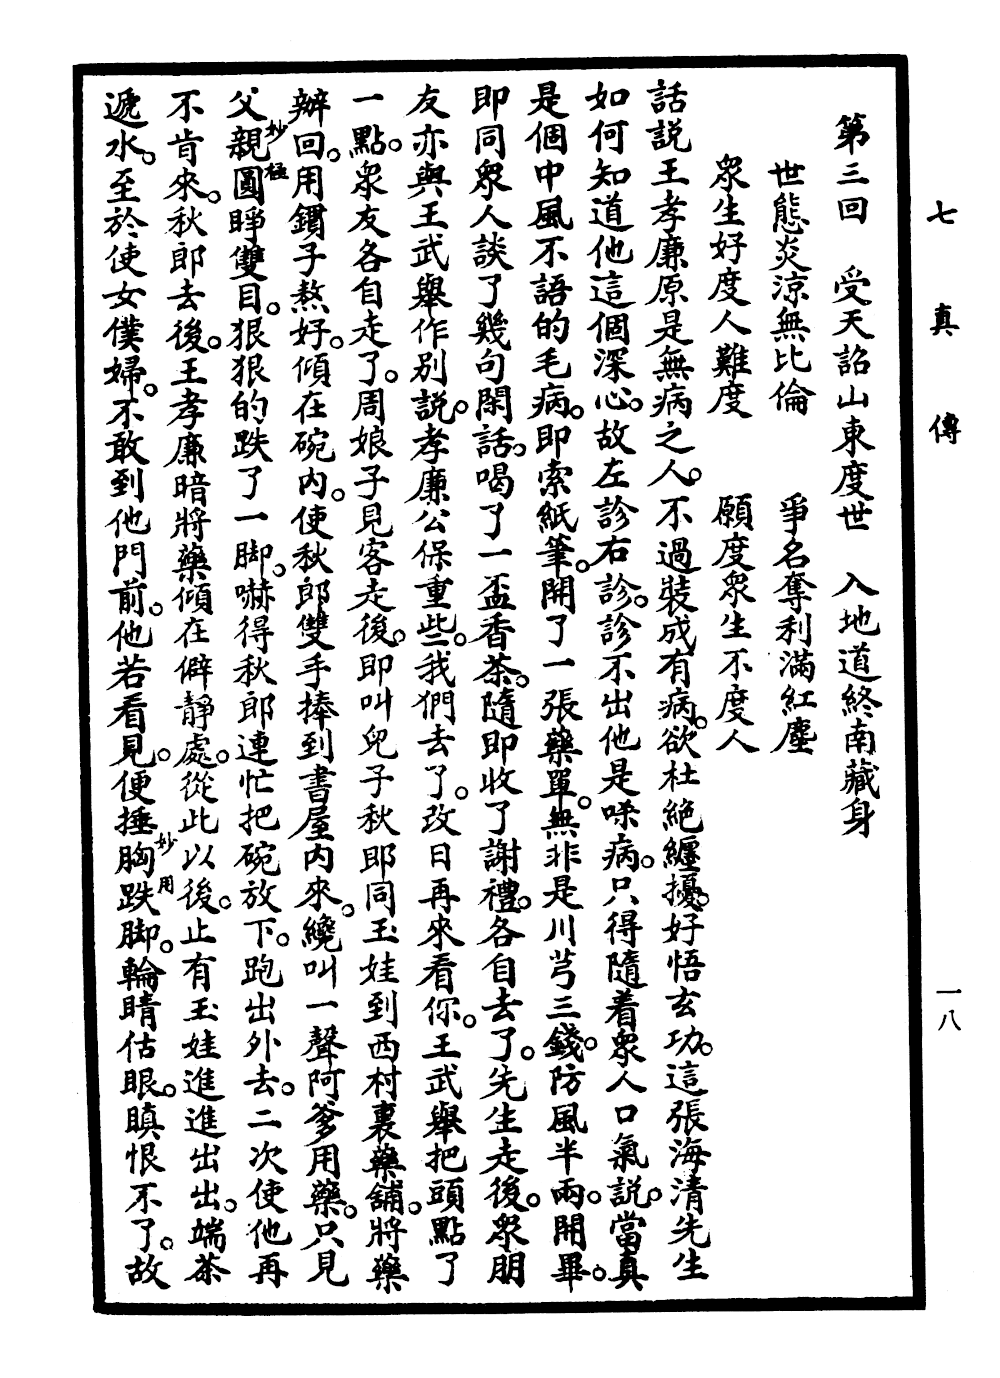 七真傳
一八
第三回　受天詔山東度世　入地道終南藏身
世態炎涼無比倫　爭名奪利滿紅塵
衆生好度人難度　願度衆生不度人
話説王孝廉原是無病之人。不過裝成有病。欲杜絶纏擾。好悟玄功。這張海清先生
如何知道他這個深心。故左診右診。診不出他是啋病。只得隨着衆人口氣説。當真
是個中風不語的毛病。即索紙筆。開了一張藥單。無非是川芎三錢。防風半兩。開畢。
即同衆人談了幾句閑話。喝了一盃香茶。隨即收了謝禮。各自去了。先生走後。衆朋
友亦與王武舉作别説。孝廉公保重些。我們去了。改日再來看你。王武舉把頭點了
一點。衆友各自走了。周娘子見客走後。即叫兒子秋郎同玉娃到西村裏藥舖。將藥
辦回。用鑵子熬好。傾在碗内。使秋郎雙手捧到書屋内來。纔叫一聲阿爹用藥。只見
父親圓睜雙目。狠狠的跌了一脚。嚇得秋郎連忙把碗放下。跑出外去。二次使他再
妙極
不肯來。秋郎去後。王孝廉暗將藥傾在僻靜處。從此以後。止有玉娃進進出出。端茶
遞水。至於使女僕婦。不敢到他門前。他若看見。便捶胸跌脚。輪睛估眼。瞋恨不了。故
妙用